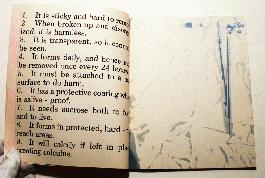 1. It is sticky and hard to remove
2. When broken up and
ized, it is harmless.
3. It is transparent, so it cannot
be seen.
4. It forms daily, and hence must
be removed once every 24 hours
5. It must be attached to a
surface to do harm.
6. It has a protective coating wh
is saliva - proof.
7. It needs sucrose both to fo
and to live.
8. It forms in protected, hard -
reach areas.
9. It will calcify if left in place
creating calculus.